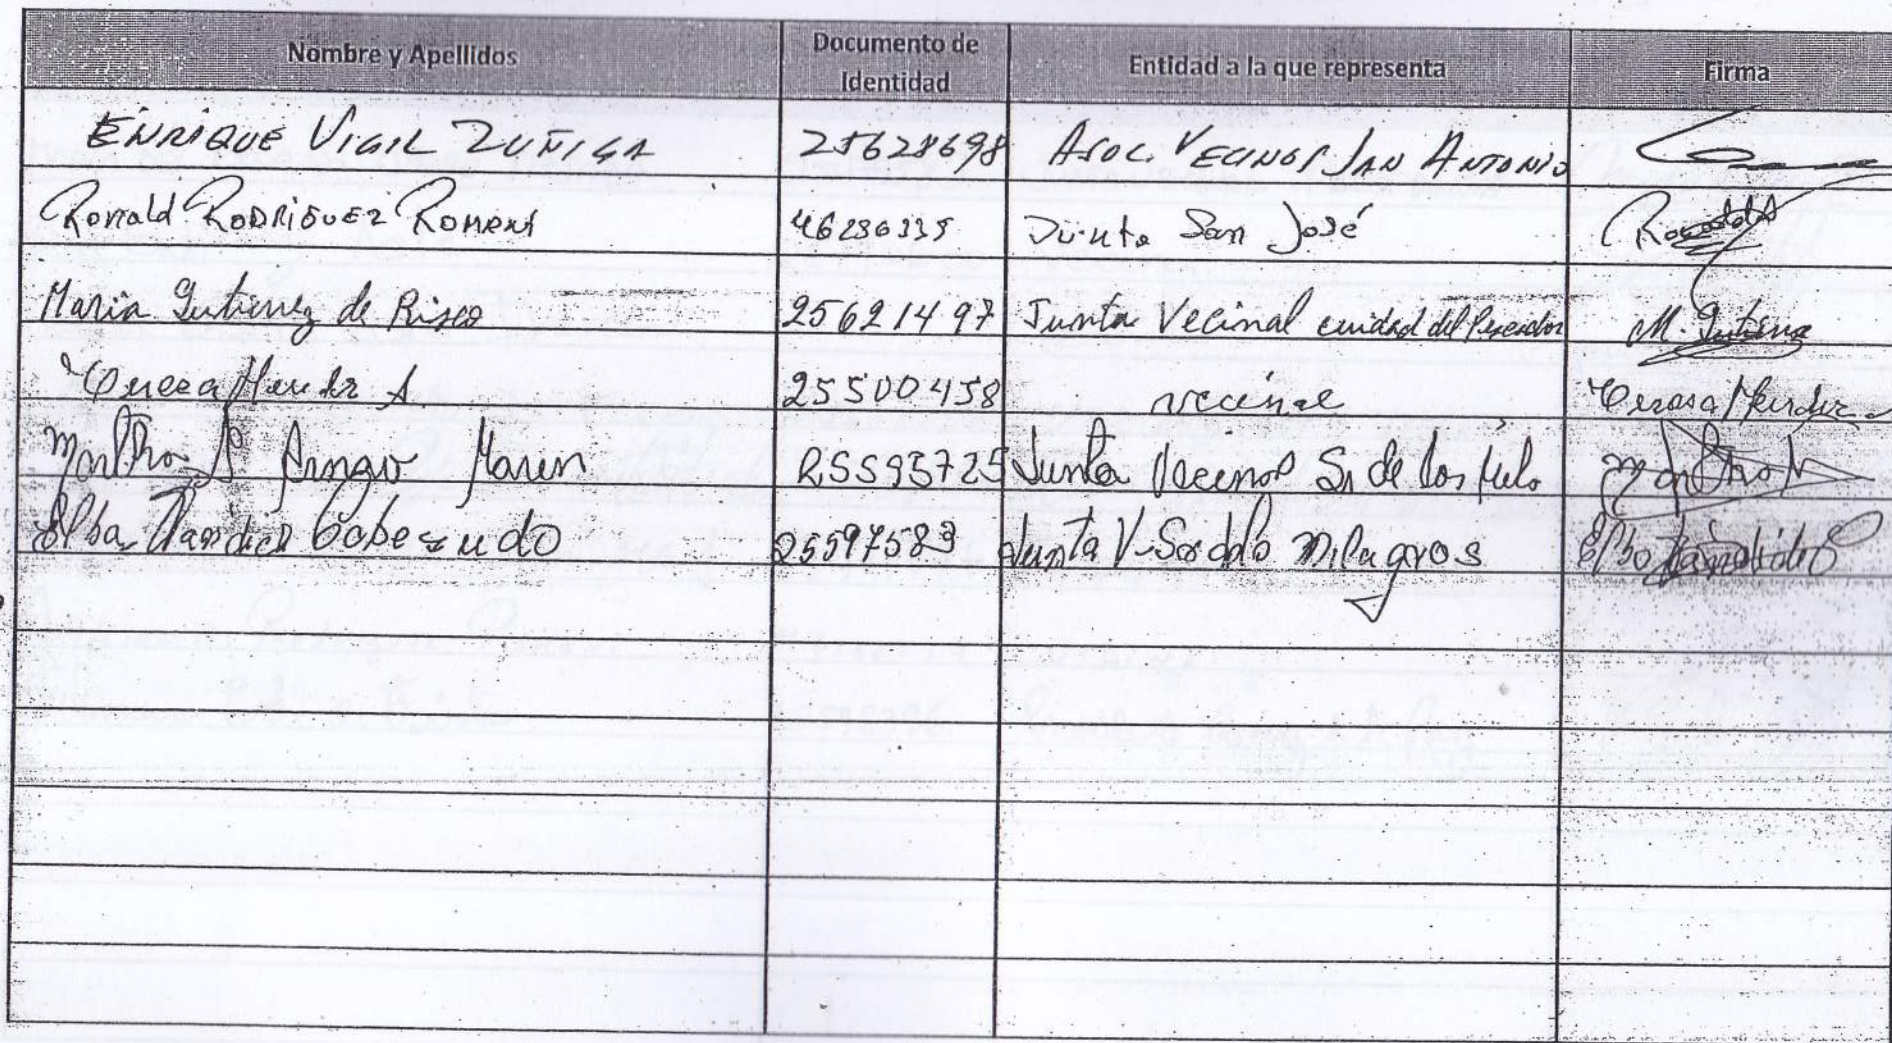 Nombre y Apellidos Documento de Identidad Entidad a la que representa Firma
ENRIQUE VIGIL ZUÑIGA 25628698 ASOC. VECINOS SAN ANTONIO
Ronald RODRIGUEZ ROMANI 46236335 Junta San José
Maria Gutierrez de Risco 25621497 Junta Vecinal ciudad del Pescador M. Gutierrez
Teresa Mendez A 25500458 vecinal Teresa Mendez
Martha A Arngo Marin 25593725 Junta Vecinos Sr de los Milo Martha
Elba Candidel Cabezudo 25597583 Junta V-Sr de lo Milagros Elba